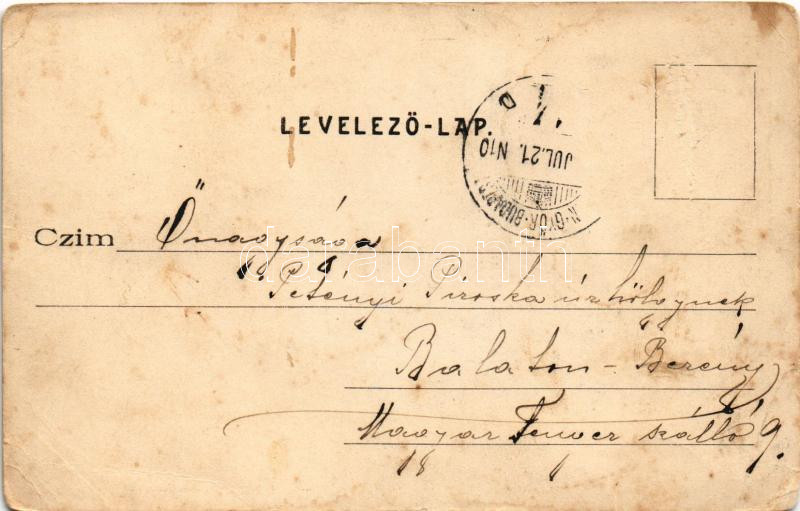 LEVELEZŐ-LAP.
JUL. 21. N10
Czim Őnagysága
Petényi Piroska úrhölgynek
Balaton-Berény
Magyar Tenger szálló 9.
darabanth